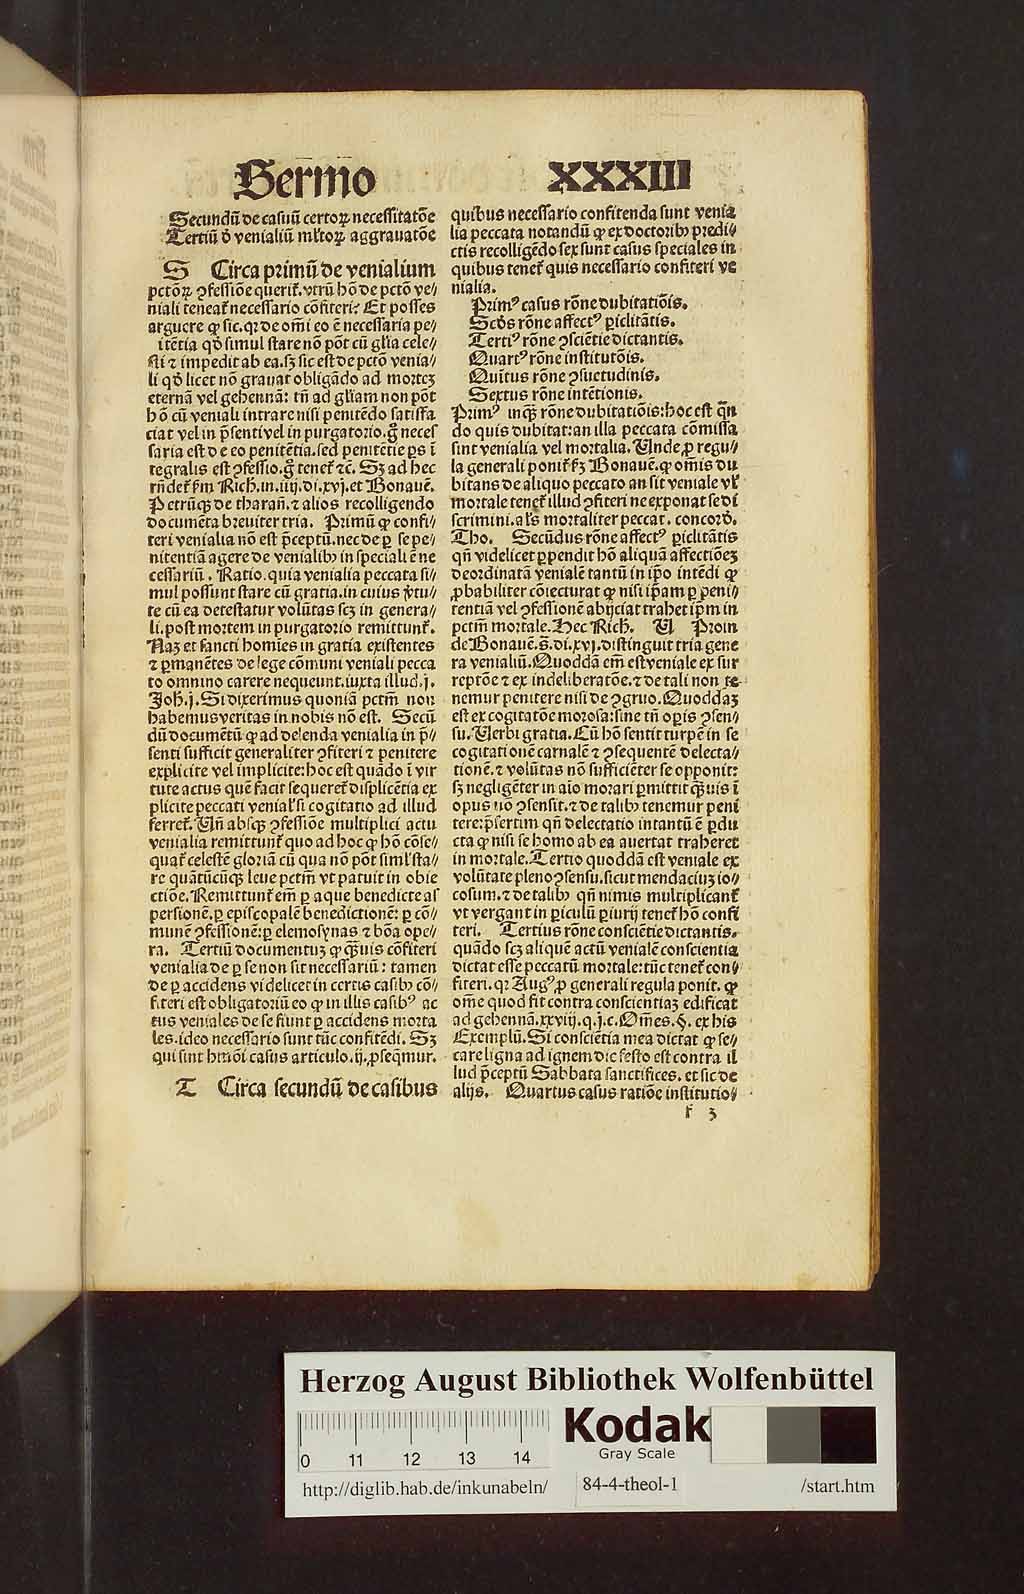 Sermo XXXIII
Secundū de casuū certoꝝ necessitatōe
Tertiū ꝺ̄ venialiū mľtoꝝ aggrauatōe
S Circa primū de venialium
pctōꝝ ꝯfessiōe querit̃. vtrū hō de pctō ve⸗
niali teneat̃ necessario cōfiteri? Et posses
arguere ꝙ sic. qꝛ de om̄i eo ē necessaria pe⸗
itētia qd̓ simul stare nō pōt cū gľia cele⸗
sti ⁊ impedit ab ea. sꝫ sic est de pctō venia⸗
li qd̓ licet nō grauat obligādo ad morteꝫ
eternā vel gehennā: tn̄ ad gľiam non pōt
hō cū veniali intrare nisi penitēdo satisfa
ciat vel in p̄senti vel in purgatorio. gͦ neces
saria est de eo penitētia. sed penitētie ꝑs ī
tegralis est ꝯfessio. gͦ tenet̃ ⁊c̄. Sꝫ ad hec
rn̄det̃ ẜm Rich. in. iiij. di. xvj. et Bonauē.
Petrūqꝫ de tharan̄. ⁊ alios recolligendo
documēta breuiter tria. Primū ꝙ confi⸗
teri venialia nō est p̄ceptū. nec de ꝑ se pe⸗
nitentiā agere de venialibꝰ in speciali ē ne
cessariū. Ratio. quia venialia peccata si⸗
mul possunt stare cū gratia. in cuius v̓tu⸗
te cū ea detestatur volūtas scꝫ in genera⸗
li. post mortem in purgatorio remittunt̃.
Naꝫ et sancti homies in gratia existentes
⁊ ꝑmanētes de lege cōmuni veniali pecca
to omnino carere nequeunt. iuxta illud. j.
Joh. j. Si dixerimus quoniā pctm̄ non
habemus veritas in nobis nō est. Secū
dū documētū ꝙ ad delenda venialia in p̄⸗
senti sufficit generaliter ꝯfiteri ⁊ penitere
explicite vel implicite: hoc est quādo ī vir
tute actus quē facit sequeret̃ displicētia ex
plicite peccati veniaľ si cogitatio ad illud
ferret̃. Vn̄ absqꝫ ꝯfessiōe multiplici actu
venialia remittunt̃ quo ad hoc ꝙ hō cōse⸗
quat̃ celestē gloriā cū qua nō pōt simľ sta⸗
re quātūcūqꝫ leue pctm̄ vt patuit in obie
ctiōe. Remittunt̃ em̄ ꝑ aque benedicte as
persionē. ꝑ episcopalē benedictionē: ꝑ cō⸗
munē ꝯfessionē: ꝑ elemosynas ⁊ bōa ope⸗
ra. Tertiū documentuꝫ ꝙ qͣꝫuis cōfiteri
venialia de ꝑ se non sit necessariū: tamen
de ꝑ accidens videlicet in certis casibꝰ cō⸗
fiteri est obligatoriū eo ꝙ in illis casibꝰ ac
tus veniales de se fiunt ꝑ accidens morta
les. ideo necessario sunt tūc confitēdi. Sꝫ
qui sunt hmōi casus articulo. ij. ꝓseqͥmur.
T Circa secundū de casibus
quibus necessario confitenda sunt venia
lia peccata notandū ꝙ ex doctoribꝰ predi⸗
ctis recolligēdo sex sunt casus speciales in
quibus tenet̃ quis necessario confiteri ve
nialia.
Primꝰ casus rōne dubitatiōis.
Scd̓s rōne affectꝰ ꝑiclitātis.
Tertiꝰ rōne ꝯsciētie dictantis.
Quartꝰ rōne institutōis.
Quītus rōne ꝯsuetudinis.
Sextus rōne intētionis.
Primꝰ inqͣꝫ rōne dubitatiōis: hoc est qn̄
do quis dubitat: an illa peccata cōmissa
sint venialia vel mortalia. Unde ꝓ regu⸗
la generali ponit̃ ẜꝫ Bonauē. ꝙ om̄is du
bitans de aliquo peccato an sit veniale vľ
mortale tenet̃ illud ꝯfiteri ne exponat se di
scrimini. alˀs mortaliter peccat. concord̓.
Tho. Secūdus rōne affectꝰ ꝑiclitātis
qn̄ videlicet ꝑpendit hō aliquā affectiōeꝫ
deordinatā venialē tantū in ip̄o intēdi ꝙ
ꝓbabiliter cōiecturat ꝙ nisi ip̄am ꝑ peni⸗
tentiā vel ꝯfessionē abijciat trahet ip̄m in
pctm̄ mortale. Hec Rich. V Proin
de Bonauē. s̄. di. xvj. distinguit tria gene
ra venialiū. Quoddā em̄ est veniale ex sur
reptōe ⁊ ex indeliberatōe. ⁊ de tali non te⸗
nemur penitere nisi de ꝯgruo. Quoddaꝫ
est ex cogitatōe morosa: sine tn̄ oꝑis ꝯsen⸗
su. Verbi gratia. Cū hō sentit turpē in se
cogitationē carnalē ⁊ ꝯsequentē delecta⸗
tionē. ⁊ volūtas nō sufficiēter se opponit:
sꝫ negligēter in aīo morari ꝑmittit qͣꝫuis ī
opus nō ꝯsensit. ⁊ de talibꝰ tenemur peni
tere: p̄sertim qn̄ delectatio intantū ē ꝑdu
cta ꝙ nisi se homo ab ea auertat traheret
in mortale. Tertio quoddā est veniale ex
volūtate pleno ꝯsensu. sicut mendaciuꝫ io⸗
cosum. ⁊ de talibꝰ qn̄ nimis multiplicant̃
vt vergant in ꝑiculū ꝑiurij tenet̃ hō confi
teri. Tertius rōne consciētie dictantis.
quādo scꝫ aliquē actū venialē conscientia
dictat esse peccatū mortale: tūc tenet̃ con⸗
fiteri. qꝛ Augꝰ ꝓ generali regula ponit. ꝙ
om̄e quod fit contra conscientiaꝫ edificat
ad gehennā. xxviij. q. j. c. Om̄es. §. ex his
Exemplū. Si consciētia mea dictat ꝙ se⸗
care ligna ad ignem die festo est contra il
lud p̄ceptū Sabbata sanctifices. et sic de
alijs. Quartus casus ratiōe institutio⸗
r 3
Herzog August Bibliothek Wolfenbüttel
Kodak
Gray Scale
0 11 12 13 14
http://diglib.hab.de/inkunabeln/ 84-4-theol-1 /start.htm